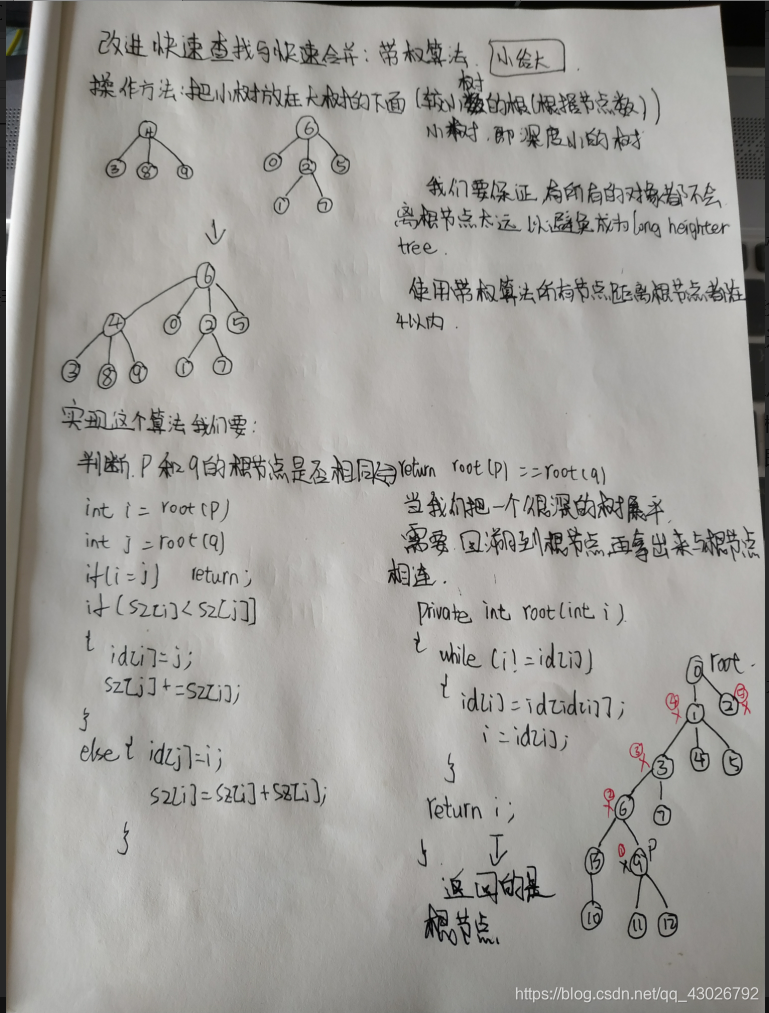 改进快速查找与快速合并：带权算法. 小给大.
操作方法：把小树放在大树的下面（较小树的根（根据节点数））
小树.即深度小的树
4
3 8 9
6
0 2 5
1 7
我们要保证 所有的对象都不会
离根节点太远 以避免成为long heighter
tree.
使用带权算法所有节点距离根节点都在
4以内.
6
4 0 2 5
3 8 9 1 7
实现这个算法我们要：
判断.P和q的根节点是否相同 return root(p) == root(q)
int i = root(P)
int j = root(q)
if(i=j) return;
if(sz[i]<sz[j]]
{ id[i]=j;
sz[j]+=sz[i];
}
else{ id[j]=i;
sz[i]=sz[i]+sz[j];
}
当我们把一个很深的树展平
需要 回溯到根节点,再拿出来与根节点
相连.
private int root(int i)
{ while (i!=id[i])
{ id[i]=id[id[i]];
i=id[i];
}
return i;
}
返回的是
根节点.
0 root.
④ 1 2 ⑤
③ 3 4 5
② 6 7
13 ① 9 P
10 11 12
https://blog.csdn.net/qq_43026792